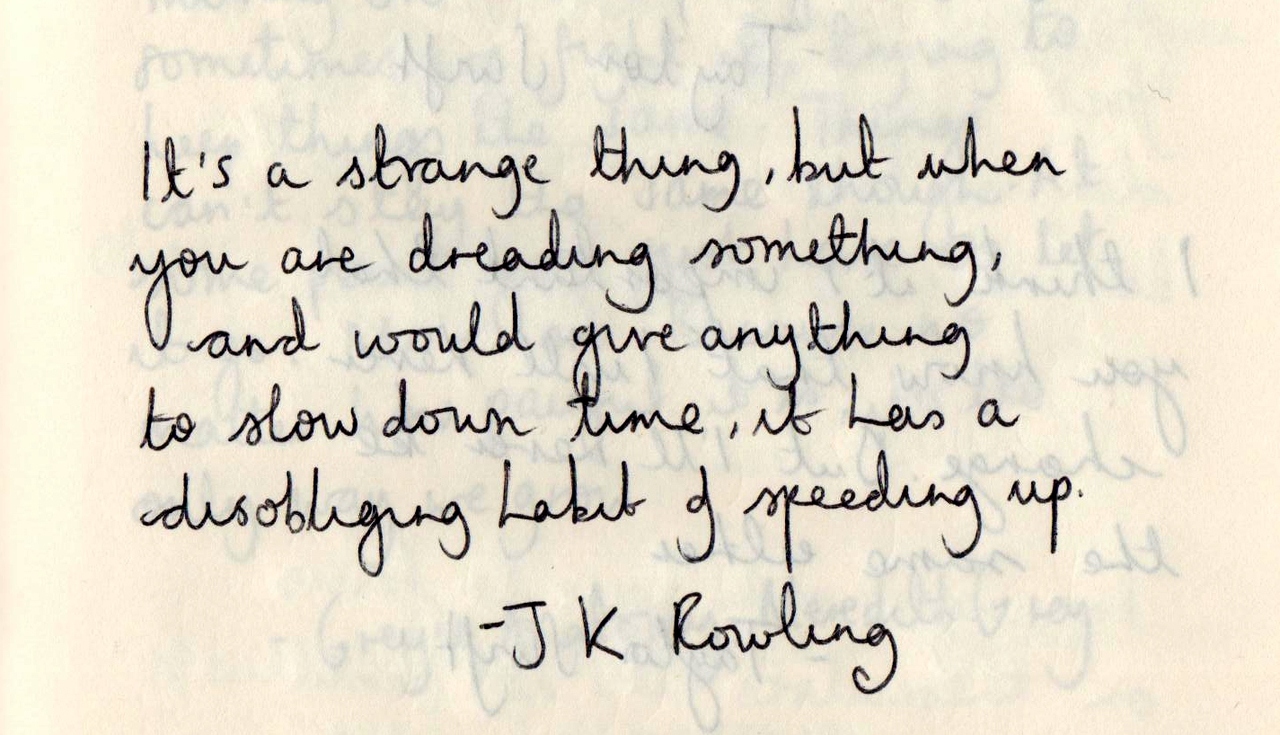 It's a strange thing, but when
you are dreading something,
and would give anything
to slow down time, it has a
disobliging habit of speeding up.
-J K Rowling